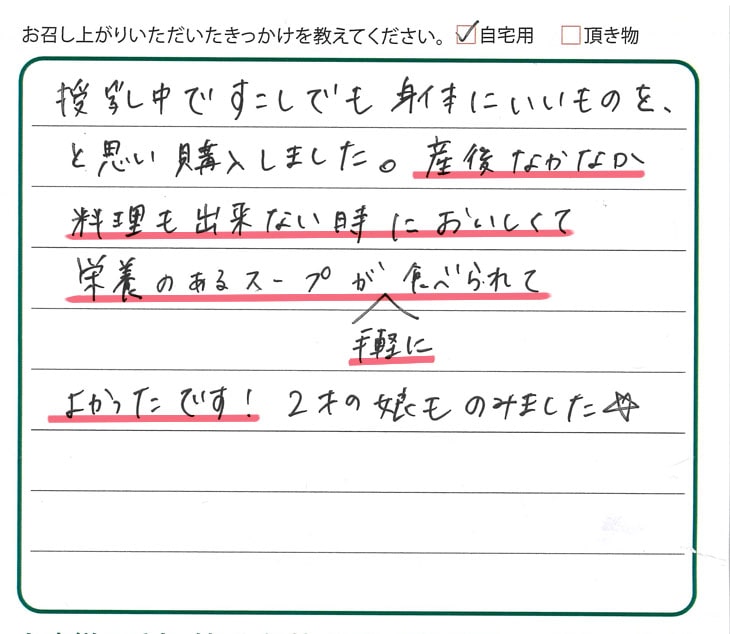 お召し上がりいただいたきっかけを教えてください。 ☑自宅用 □頂き物
授乳中ですこしでも 身体にいいものを、
と思い購入しました。産後なかなか
料理も出来ない時においしくて
栄養のあるスープが食べられて
手軽に
よかったです! 2才の娘ものみました☆